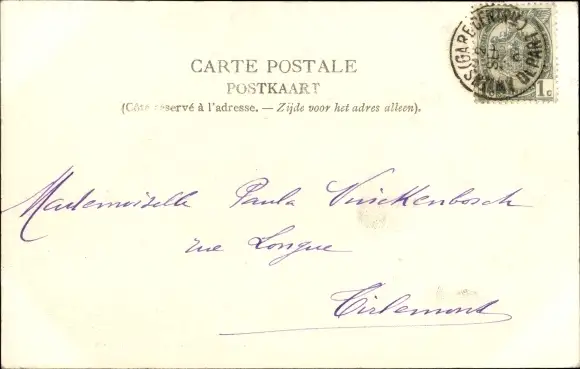 CARTE POSTALE
POSTKAART
(Côté réservé à l'adresse. — Zijde voor het adres alleen).
1c
(GARE CENTRALE) DÉPART
Mademoiselle Paula Vinckenbosch
rue Longue
Tirlemont